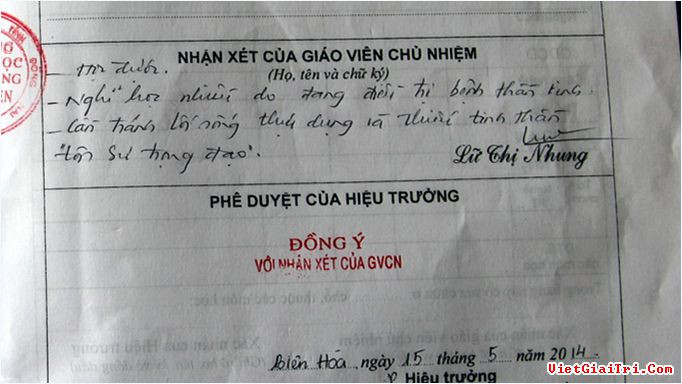 NHẬN XÉT CỦA GIÁO VIÊN CHỦ NHIỆM
(Họ, tên và chữ ký)
- Học được.
- Nghỉ học nhiều do đang điều trị bệnh thần kinh.
- Cần tránh lối sống thực dụng và thiếu tinh thần
"tôn sư trọng đạo".
Lữ Thị Nhung
PHÊ DUYỆT CỦA HIỆU TRƯỞNG
ĐỒNG Ý
VỚI NHẬN XÉT CỦA GVCN
Biên Hòa, ngày 15 tháng 5 năm 2014
Hiệu trưởng
VietGiaiTri.Com